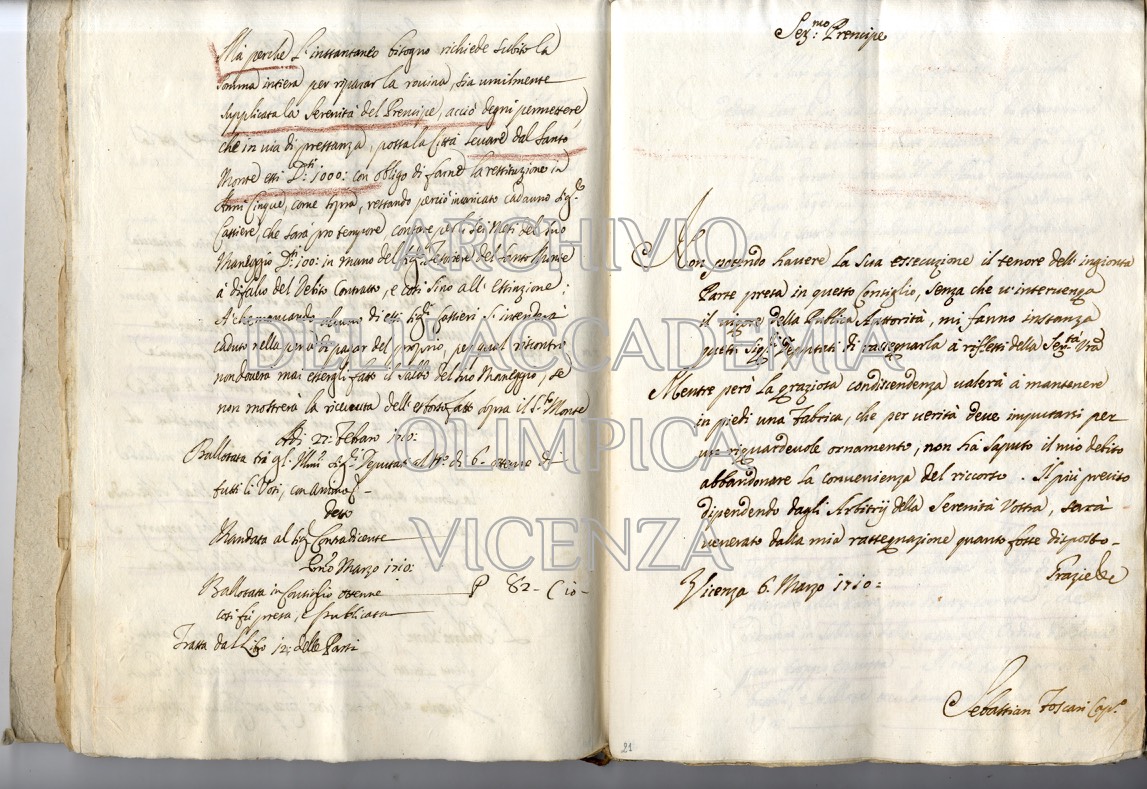 Mà perche l'instantaneo bisogno richiede subito la
somma intiera per riparar la rovina, sia umilmente
supplicata la Serenità del Prencipe, acciò degni permettere,
che in via di prestanza, possa la Città levare dal Santo
Monte essi D.ti 1000: con obligo di farne la restituzione in
Anni Cinque, come sopra, restando perciò incaricato cadauno Sig.r
Cassiere, che sarà pro tempore contare per li sei Mesi del suo
Maneggio D.ti 100: in mano del Sig.r Tesoriere del Santo Monte
a difalco del Debito Contratto, e così sino all'Estinzione:
A che mancando alcuno di essi Sig.ri Cassieri s'intenderà
caduto nella pena di pagar del proprio, per qual riscontro
non doverà mai essergli fatto il saldo del suo Maneggio, se
non mostrerà la riceuta dell'esborso fatto sopra il S.to Monte
Adi 27: Febraro 1710:
Ballotata trà gl'Ill.mi Sig.ri Deputati al N.o di 6- ottenne di
tutti li Voti, con
detto
Mandata al Sig.r Contradicente
Primo Marzo 1710:
Ballotata in Consiglio ottenne P 82- C 10-
così fù presa, e publicata
Tratta dal Libro 12: delle Parti
Ser.mo Prencipe
Non potendo havere la sua essecuzione il tenore dell'ingionta
Parte presa in questo Consiglio, senza che v'intervenga
il vigore della Publica Auttorità, mi fanno instanza
questi Sig.ri Deputati di rassegnarla à riflessi della Ser.tà V.ra
Mentre però la graziosa condiscendenza valerà à mantenere
in piedi una Fabrica, che per verità deve imputarsi per
un riguardevole ornamento, non hà saputo il mio debito
abbandonare la convenienza del riccorso. Il più preciso
dipendendo dagli Arbitrij della Serenità Vostra, sarà
venerato dalla mia rassegnazione quanto fosse disposto-
Grazie &c
Vicenza 6. Marzo 1710:
Sebastian Foscari Cap.o
21
ARCHIVIO
DELL'ACCADEMIA
OLIMPICA
VICENZA